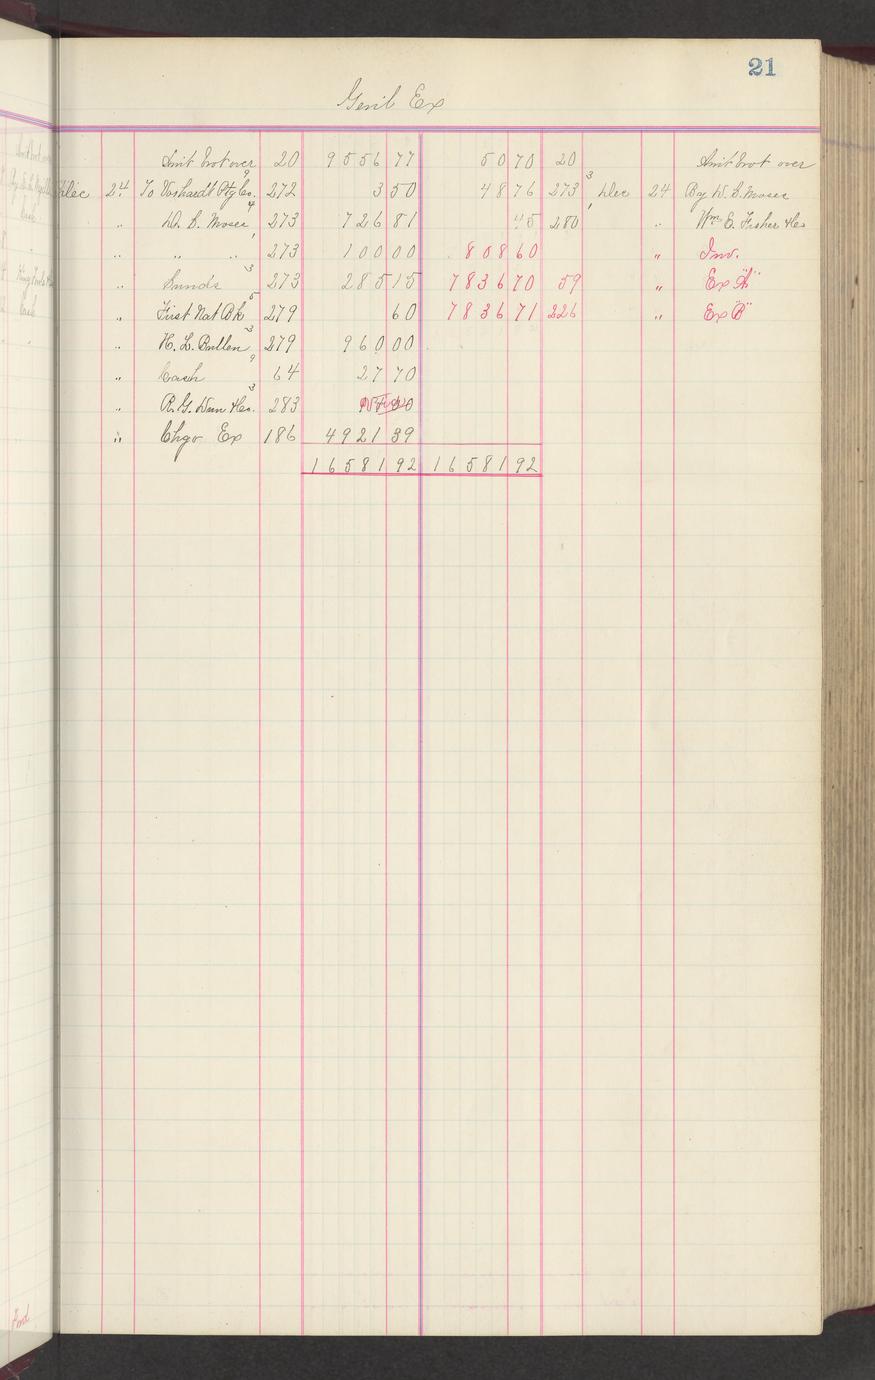 21
Genl Ex
Amt brot over 20 9556 77 50 70 20 Amt brot over
Dec 24 To Voshardt Ptg Co. 9 272 3 50 48 76 273 3 Dec 24 By W. S. Moses
" W. S. Moses 4 273 726 81 45 280 1 " Wm E. Fisher & Co
" " " 1 273 100 00 808 60 " Inv.
" Sunds 3 273 285 15 7836 70 59 " Ex "A"
" First Nat Bk 5 279 60 7836 71 226 " Ex "B"
" H. L. Bullen 3 279 960 00
" Cash 9 64 27 70
" R. G. Dun & Co. 3 283
" Chgo Ex 186 4921 39
16581 92 16581 92